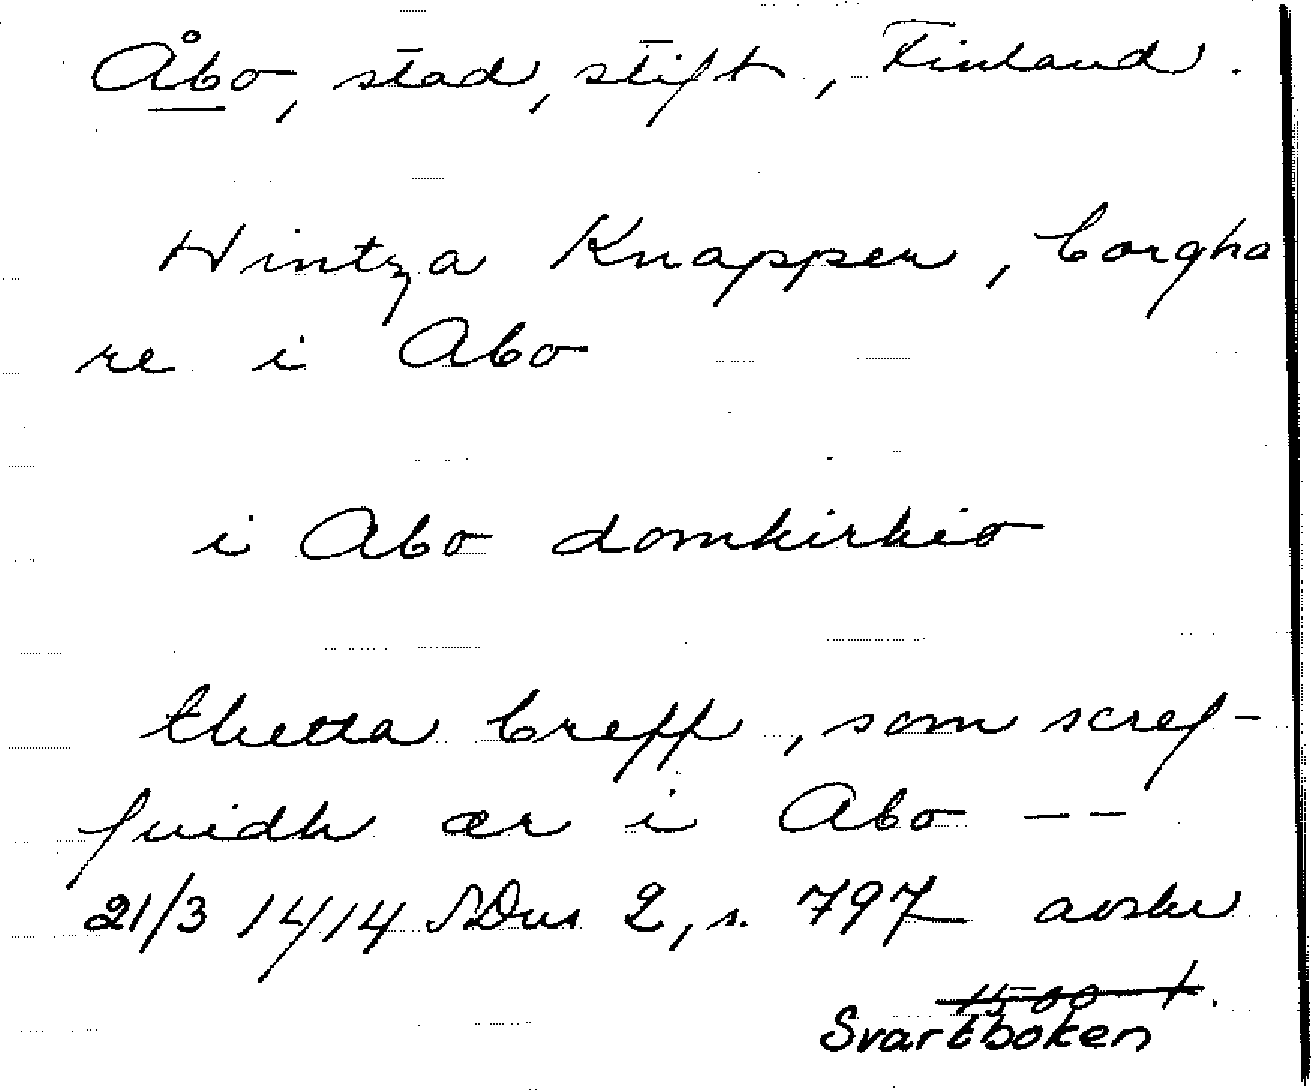 Åbo, stad, stift, Finland.
Hintza Knapper, borgha
re i Abo
i Abo domkirkio
thetta breff, som scref-
fuidh ær i Abo --
21/3 1414 SDns 2, s. 797 avskr
Svartboken